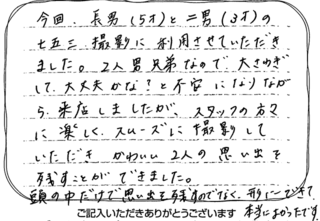 今回、長男(5才)と二男(3才)の
七五三撮影に利用させていただき
ました。2人男兄弟なので大さわぎ
して大丈夫かな?と不安になりなが
ら、来店しましたが、スタッフの方々
に楽しく、スムーズに撮影して
いただき かわいい2人の思い出を
残すことができました。
頭の中だけで思い出を残すのでなく、形にできて
ご記入いただきありがとうございます 本当によかったです